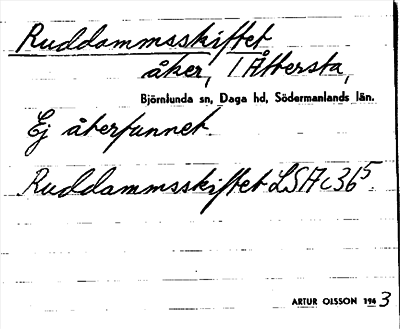 Ruddammsskiftet
åker, i Åttersta,
Björnlunda sn, Daga hd, Södermanlands län.
Ej återfunnet.
Ruddammsskiftet LSA c 36⁵.
ARTUR OLSSON 1943